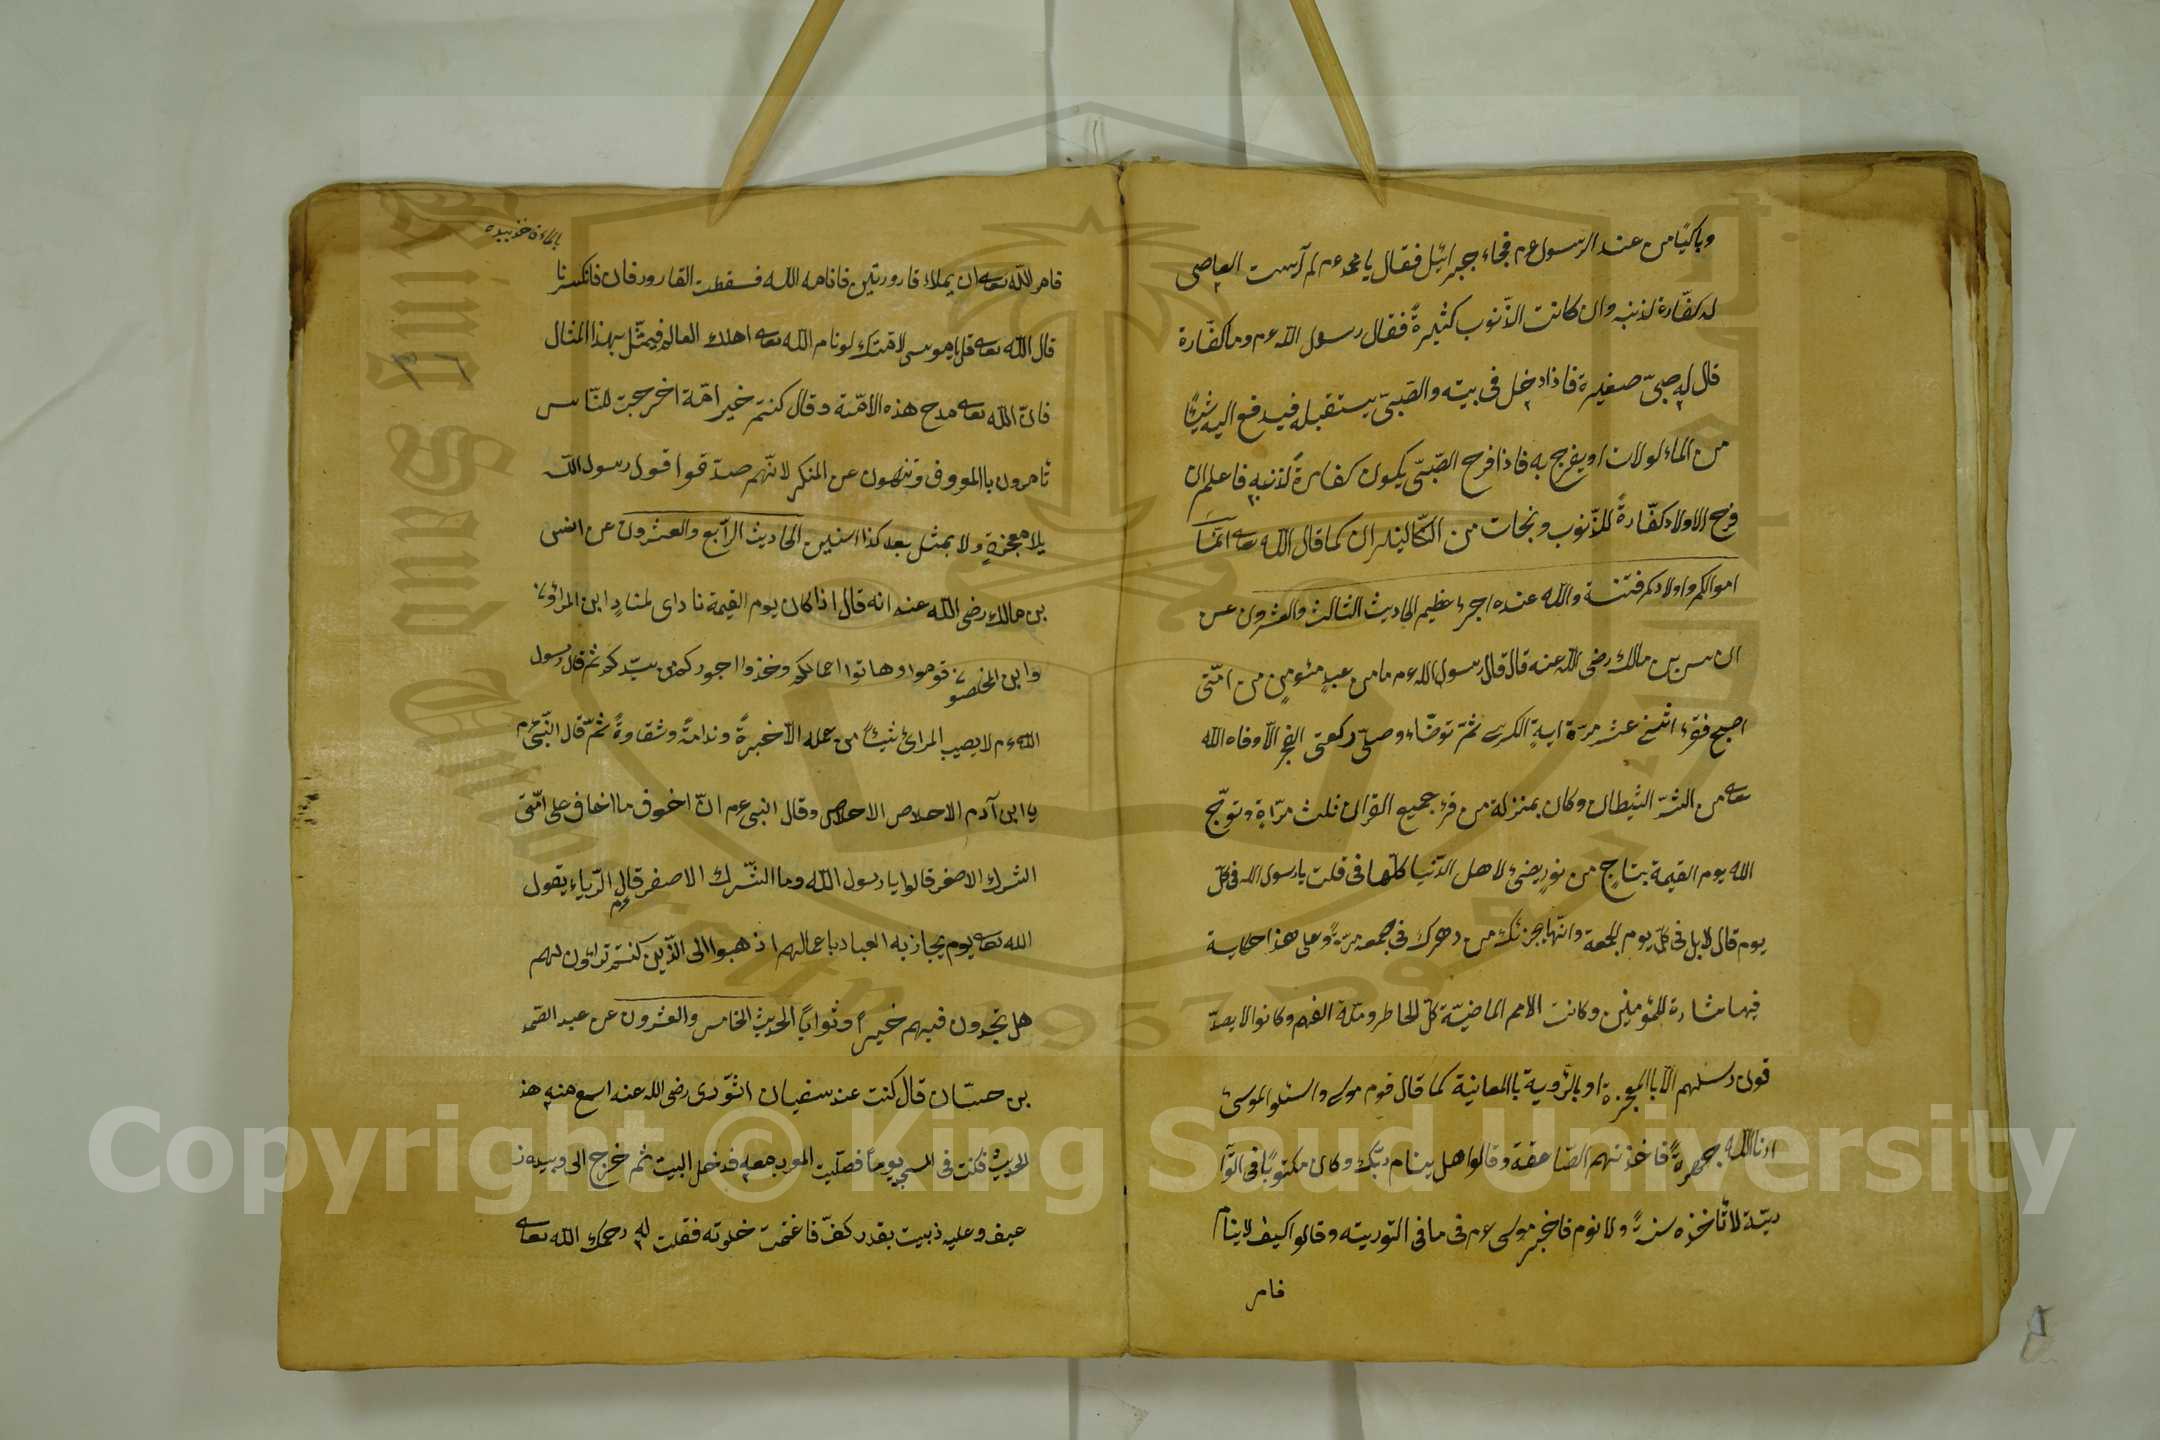 وباكيًا من عند الرسول عم فجاء جبرائيل فقال يا محمد عم لم آيست العاصى
له كفّارة لذنبه وان كانت الذّنوب كثيرةً فقال رسول الله عم وما كفّارة
قال له صبىّ صغيرة فاذا دخل فى بيته والصّبىّ يستقبله فيدفع اليه شيئًا
من الماء لولات او يفرج به فاذا فرح الصّبىّ يكون كفارةً لذنبه فاعلم ان
فرح الاولاد كفّارةً للذّنوب ونجات من النيران كما قال الله تعالى انّما
اموالكم واولادكم فتنة والله عنده اجر عظيم الحاديث الثالث والعشرون عن
انس بن مالك رضى الله عنه قال قال رسول الله عم ما من عبدٍ مئومنٍ من امّتى
اصبح فقرء اثنى عشر مرّة اية الكرسى ثمّ توضّاء وصلّى ركعتى الفجر الّا وفاه الله
تعالى من الشرّ الشيطان وكان بمنزلة من قرء جميع القران ثلث مرّاة وتوّج
الله يوم القيمة بتاجٍ من نورٍ يضئ لاهل الدّنيا كلّها فى قلت يا رسول الله فى كلّ
يوم قال لا بل فى كلّ يوم الجمعة وانّها يجزئك من دهرك فى جمعة مرّةً وعلى هذا حكاية
فيها بشارة للمئومنين وكانت الامم الماضيّة كلّ الخاطر وقلّة الفهم وكانوا لا يصدّ
قون رسلهم الّا بالمعجزة او بالرّوية باالمعانية كما قال قوم موسى واسئلوا لموسى
ارنا الله جهرةً فاخذتهم الصّاعقة وقالوا هل ينام ربّك وكان مكتوبًا فى التّوا
ريّة لا تأخذه سنةً ولا نوم فاخبر موسى عم فى ما فى التوريته وقالوا كيف لا ينام
فامر
بالماء فاخذ بيده
فامر الله تعالى ان يملاء قارورتين فانامه الله فسقطت القارورفان فانكسرتا
قال الله تعالى قل يا موسى لامّتك لو نام الله تعالى اهلك العالم فيمثّل بهذا المثال
فانّ الله تعالى مدح هذه الامّة وقال كنتم خير امّة اخرجت للنّاس
تامرون باالمعروف وتنهون عن المنكر لانّهم صدّقوا قول رسول الله
بلا معجزةٍ ولا بمثل بعد كذا سنين الحاديث الرّابع والعشرون عن انس
بن مالك رضى الله عنه انه قال اذا كان يوم القيمة نادى لمنادٍ اين المرائون
واين المخلصون قوموا وهاتوا اعمالكم وخذوا اجوركم من سيّدكم ثم قال رسول
الله عم لا يصيب المرائ شيئًا من عمله الّا خبرةً وندامةً وشقاوةً ثمّ قال النّبى عم
يا ابن آدم الاخلاص الاخلاص وقال النبى عم انّ اخوف ما اخاف على امّتى
الشرك الاصغر قالوا يا رسول الله وما الشّرك الاصغر قال عم الرّياء يقول
الله تعالى يوم يجازيه العباد باعمالهم اذهبوا الى الّذين كنتم ترائون لهم
هل تجدون فيهم خيراً وثوابًا الحديث الخامس والعشرون عن عبد الصّمد
بن حسّان قال كنت عند سفيان الثّورى رضى الله عنه اسمع منه هذ
الحديث فكنت فى المسجد يومًا فصلّيت المغرب معه فدخل البيت ثم خرج الى وبيده ر
غيف وعليه زبيت بقدر كفّ فاغتمت خلوته فقلت له رحمك الله تعالى
Copyright © King Saud University
King Saud University
1957